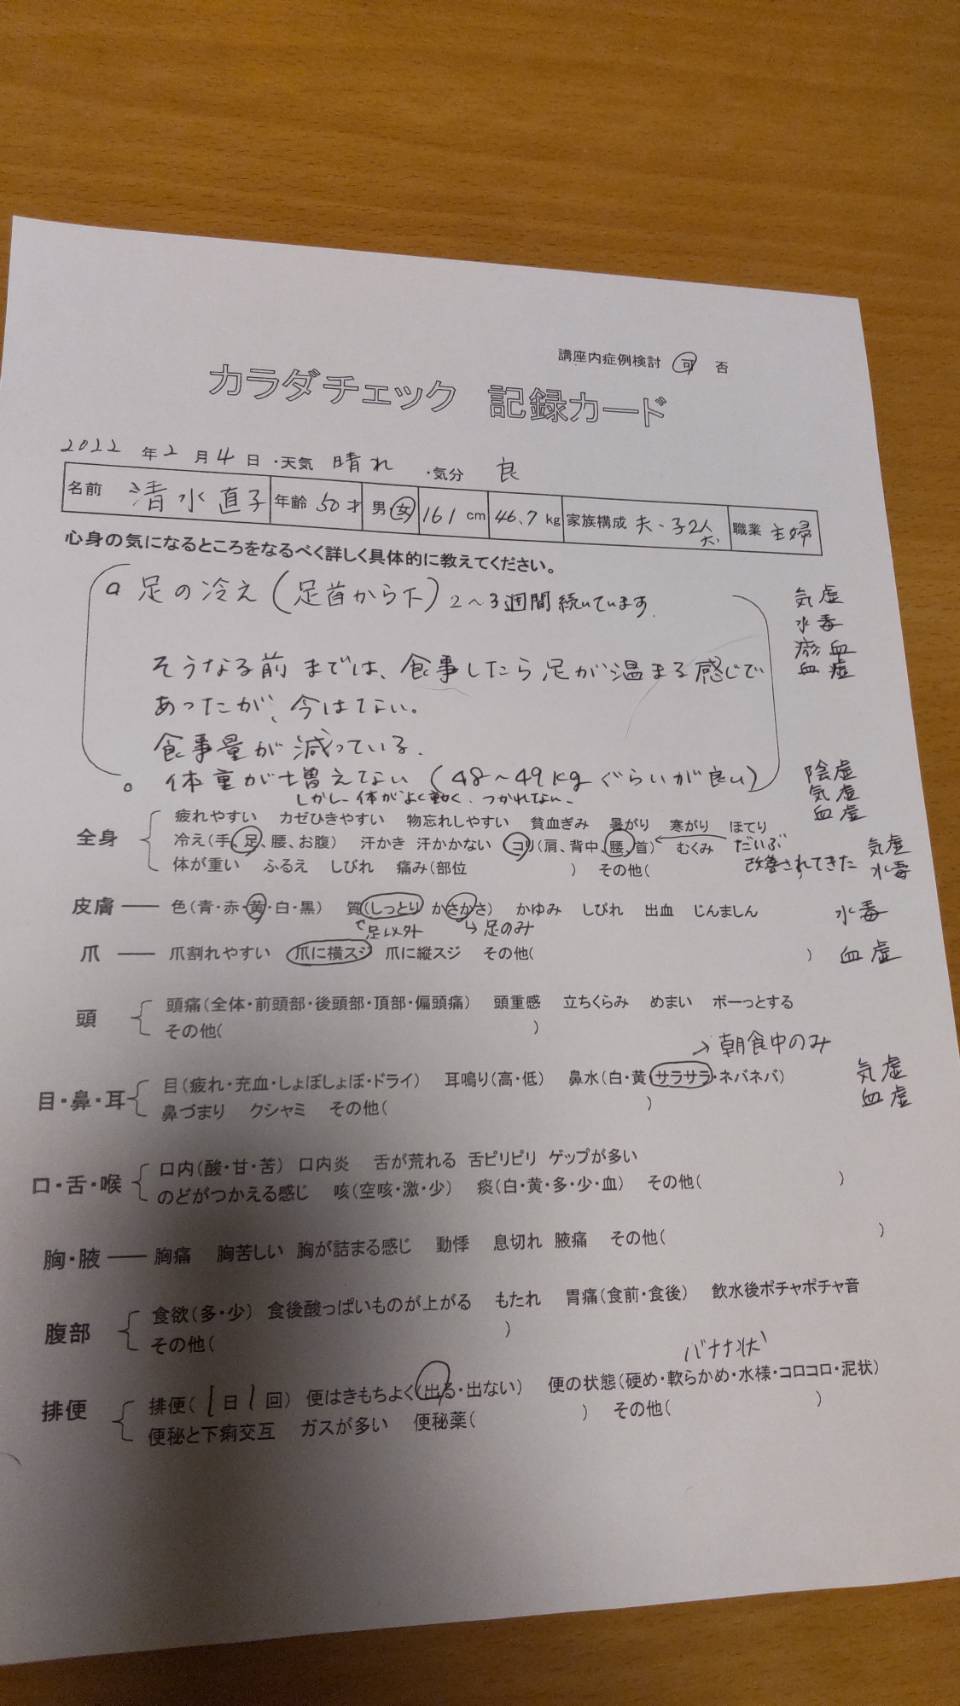 講座内症例検討 可 否
カラダチェック 記録カード
2022 年 2 月 4 日 ・天気 晴れ ・気分 良
名前 清水直子 年齢 50才 男 女 161 cm 46.7 kg 家族構成 夫・子2人 犬、 職業 主婦
心身の気になるところをなるべく詳しく具体的に教えてください。
足の冷え(足首から下) 2〜3週間続いています
気虚
水毒
瘀血
血虚
そうなる前までは、食事したら足が温まる感じで
あったが、今はない。
食事量が減っている.
体重が増えてない (48〜49kgぐらいが良い)
しかし、体がよく動く、つかれない、
陰虚
気虚
血虚
全身
疲れやすい カゼひきやすい 物忘れしやすい 貧血ぎみ 暑がり 寒がり ほてり
冷え(手、足、腰、お腹) 汗かき 汗かかない コリ(肩、背中、腰、首) むくみ
だいぶ
改善されてきた
気虚
水毒
体が重い ふるえ しびれ 痛み(部位 ) その他(
皮膚 ── 色(青・赤・黄・白・黒) 質(しっとり かさかさ) かゆみ しびれ 出血 じんましん 水毒
足以外 足のみ
爪 ── 爪割れやすい 爪に横スジ 爪に縦スジ その他( ) 血虚
頭
頭痛(全体・前頭部・後頭部・頂部・偏頭痛) 頭重感 立ちくらみ めまい ボーっとする
その他( )
→ 朝食中のみ
目・鼻・耳
目(疲れ・充血・しょぼしょぼ・ドライ) 耳鳴り(高・低) 鼻水(白・黄・サラサラ・ネバネバ)
鼻づまり クシャミ その他( )
気虚
血虚
口・舌・喉
口内(酸・甘・苦) 口内炎 舌が荒れる 舌ピリピリ ゲップが多い
のどがつかえる感じ 咳(空咳・激・少) 痰(白・黄・多・少・血) その他( )
胸・腋 ── 胸痛 胸苦しい 胸が詰まる感じ 動悸 息切れ 腋痛 その他( )
腹部
食欲(多・少) 食後酸っぱいものが上がる もたれ 胃痛(食前・食後) 飲水後ポチャポチャ音
その他( )
バナナ状
排便
排便( 1 日 1 回) 便はきもちよく(出る・出ない) 便の状態(硬め・軟らかめ・水様・コロコロ・泥状)
便秘と下痢交互 ガスが多い 便秘薬( ) その他( )